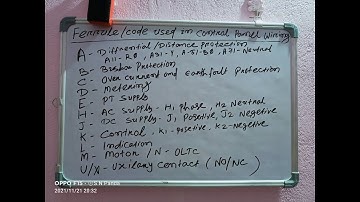 Ferrule/code used in control Panel Wiring
A - Differential/Distance Protection
A11-RØ, A31-Y, A51-BØ, A71-Neutral
B - Busbar Protection
C - Over current and earthfault Protection
D - Metering
E - PT Supply
H - AC Supply - H1 Phase, H2 Neutral
J - DC Supply - J1 Posetive, J2 Negetive
K - Control, K1-Posetive, K2-Negetive
L - Indication
M - Motor / N - OLTC
U/X - Uxilary Contact (NO/NC)
OPPO F15 · ©S N Panda
2021/11/21 20:32